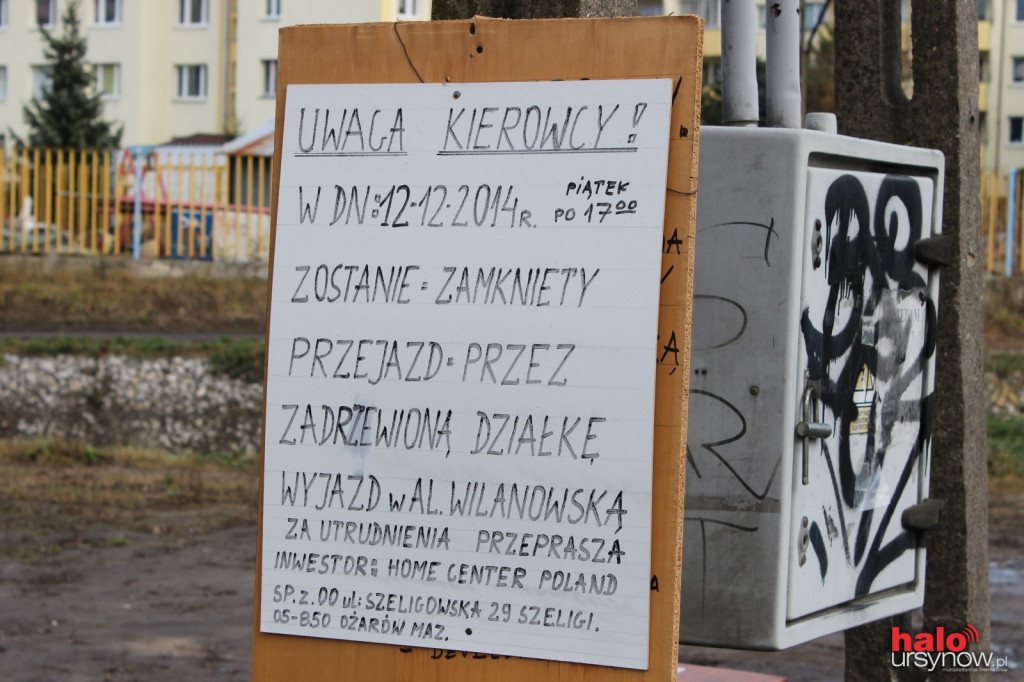 UWAGA KIEROWCY!
W DN: 12-12-2014R. PIĄTEK PO 17⁰⁰
ZOSTANIE = ZAMKNIETY
PRZEJAZD = PRZEZ
ZADRZEWIONĄ DZIAŁKĘ
WYJAZD W AL. WILANOWSKĄ
ZA UTRUDNIENIA PRZEPRASZA
INWESTOR: HOME CENTER POLAND
SP. z. OO ul: SZELIGOWSKA 29 SZELIGI.
05-850 OŻARÓW MAZ.
halo
ursynow.pl